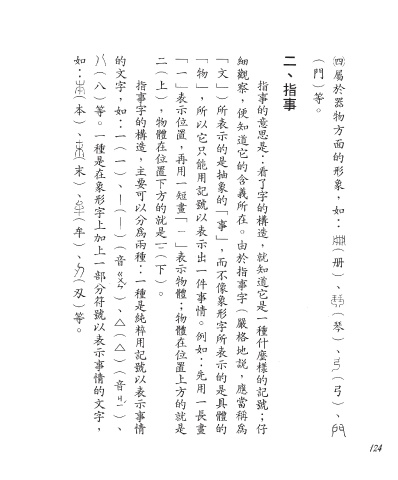 ㈣屬於器物方面的形象，如：（册）、（琴）、（弓）、
（門）等。
二、指事
指事的意思是：看了字的構造，就知道它是一種什麼樣的記號；仔
細觀察，便知道它的含義所在。由於指事字（嚴格地説，應當稱爲
「文」）所表示的是抽象的「事」，而不像象形字所表示的是具體的
「物」，所以它只能用記號以表示出一件事情。例如：先用一長畫
「一」表示位置，再用一短畫「一」表示物體；物體在位置上方的就是
二（上），物體在位置下方的就是（下）。
指事字的構造，主要可以分爲兩種：一種是純粹用記號以表示事情
的文字，如：一（一）、丨（丨）（音ㄍㄨㄣˇ）、△（△）（音ㄐㄧˊ）、
八（八）等。一種是在象形字上加上一部分符號以表示事情的文字，
如：（本）、（末）、（牟）、（刄）等。
124